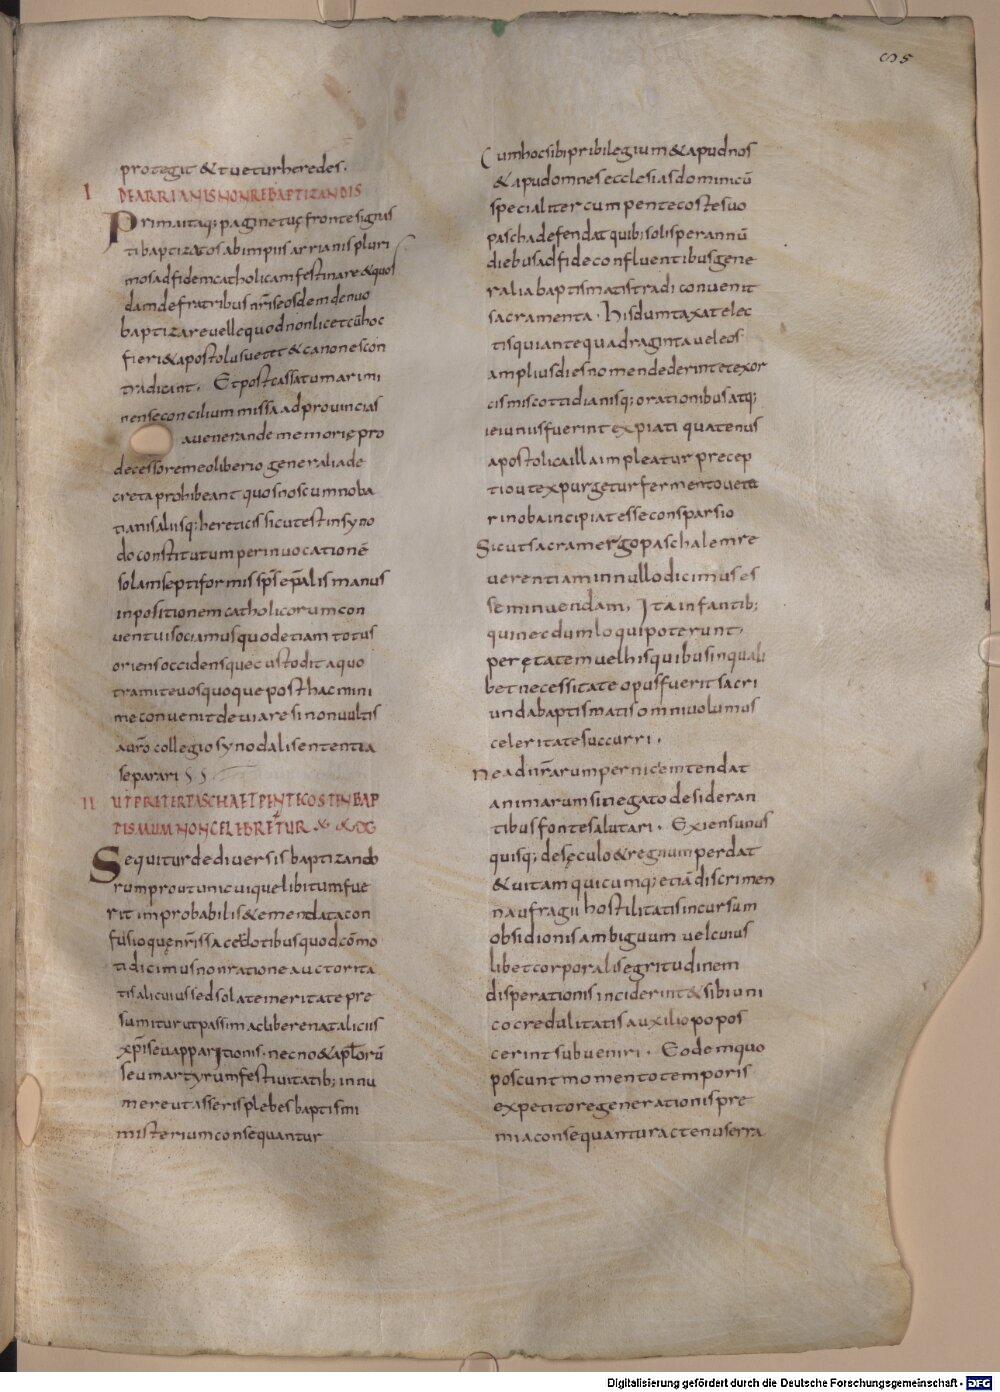 95
protegit & tuetur heredes.
I DE ARRIANIS NON REBAPTIZANDIS
Prima itaq; paginę tuę fronte signas
ti baptizatos ab impiis arrianis pluri
mos ad fidem catholicam festinare & quos
dam de fratribus nr̄is eosdem denuo
baptizare velle quod non licet cū hoc
fieri & apostolus uetet & canones con
tradicant. Et post cassatum arimi
nense concilium missa ad provincias
a venerande memorię pro
decessore meo liberio generalia de
creta prohibeant quos nos cum noba
tianis aliisq; hereticis sicut est in syno
do constitutum per invocationē
solam septiformis sp̄s ep̄alis manus
inpositionem catholicorum con
uentui sociamus quod etiam totus
oriens occidensque custodit a quo
tramite vos quoque posthac mini
me convenit deviare si non vultis
a nr̄o collegio synodali sententia
separari
II UT PRETER PASCHA ET PENTECOSTEN BAP
TISMUM NON CELEBRETUR
Sequitur de diversis baptizando
rum prout unicuique libitum fue
rit improbabilis & emendata con
fusio quę nr̄is sacerdotibus quod cōmo
ti dicimus non ratione auctorita
tis alicuius sed sola temeritate pre
sumitur ut passim ac libere natalicus
xp̄i seu apparitionis. necno & apl̄orū
seu martyrum festivitatib; innu
mere ut asseris plebes baptismi
misterium consequantur
Cum hoc sibi pribilegium & apud nos
& apud omnes ecclesias dominicū
specialiter cum pentecoste suo
pascha defendat quib; solis per annū
diebus ad fide confluentibus gene
ralia baptismatis tradi convenit
sacramenta. His dumtaxat elec
tis qui ante quadraginta vel eos
amplius dies nomen dederint et exor
cismis cottidianisq; orationibus atq;
ieiuniis fuerint expiati quatenus
apostolica illa impleatur precep
tio ut expurgetur fermento vete
ri noba incipiat esse consparsio
Sicut sacram ergo paschalem re
uerentiam in nullo dicimus es
se minuendam, Ita infantib;
qui necdum loqui poterunt,
per ętatem vel his quibus in quali
bet necessitate opus fuerit sacri
unda baptismatis omni volumus
celeritate succurri.
ne ad nr̄arum perniciem tendat
animarum si negato desideran
tibus fonte salutari. Exiens unus
quisq; de sęculo & regnum perdat
& vitam quicumq; etiā discrimen
naufragii hostilitatis incursum
obsidionis ambiguum vel cuius
libet corporalis egritudinem
disperationis inciderint & sibi uni
co credulitatis auxilio popos
cerint subveniri. Eodem quo
poscunt momento temporis
expetito regenerationis pre
mia consequantur actenus erra
Digitalisierung gefördert durch die Deutsche Forschungsgemeinschaft - DFG